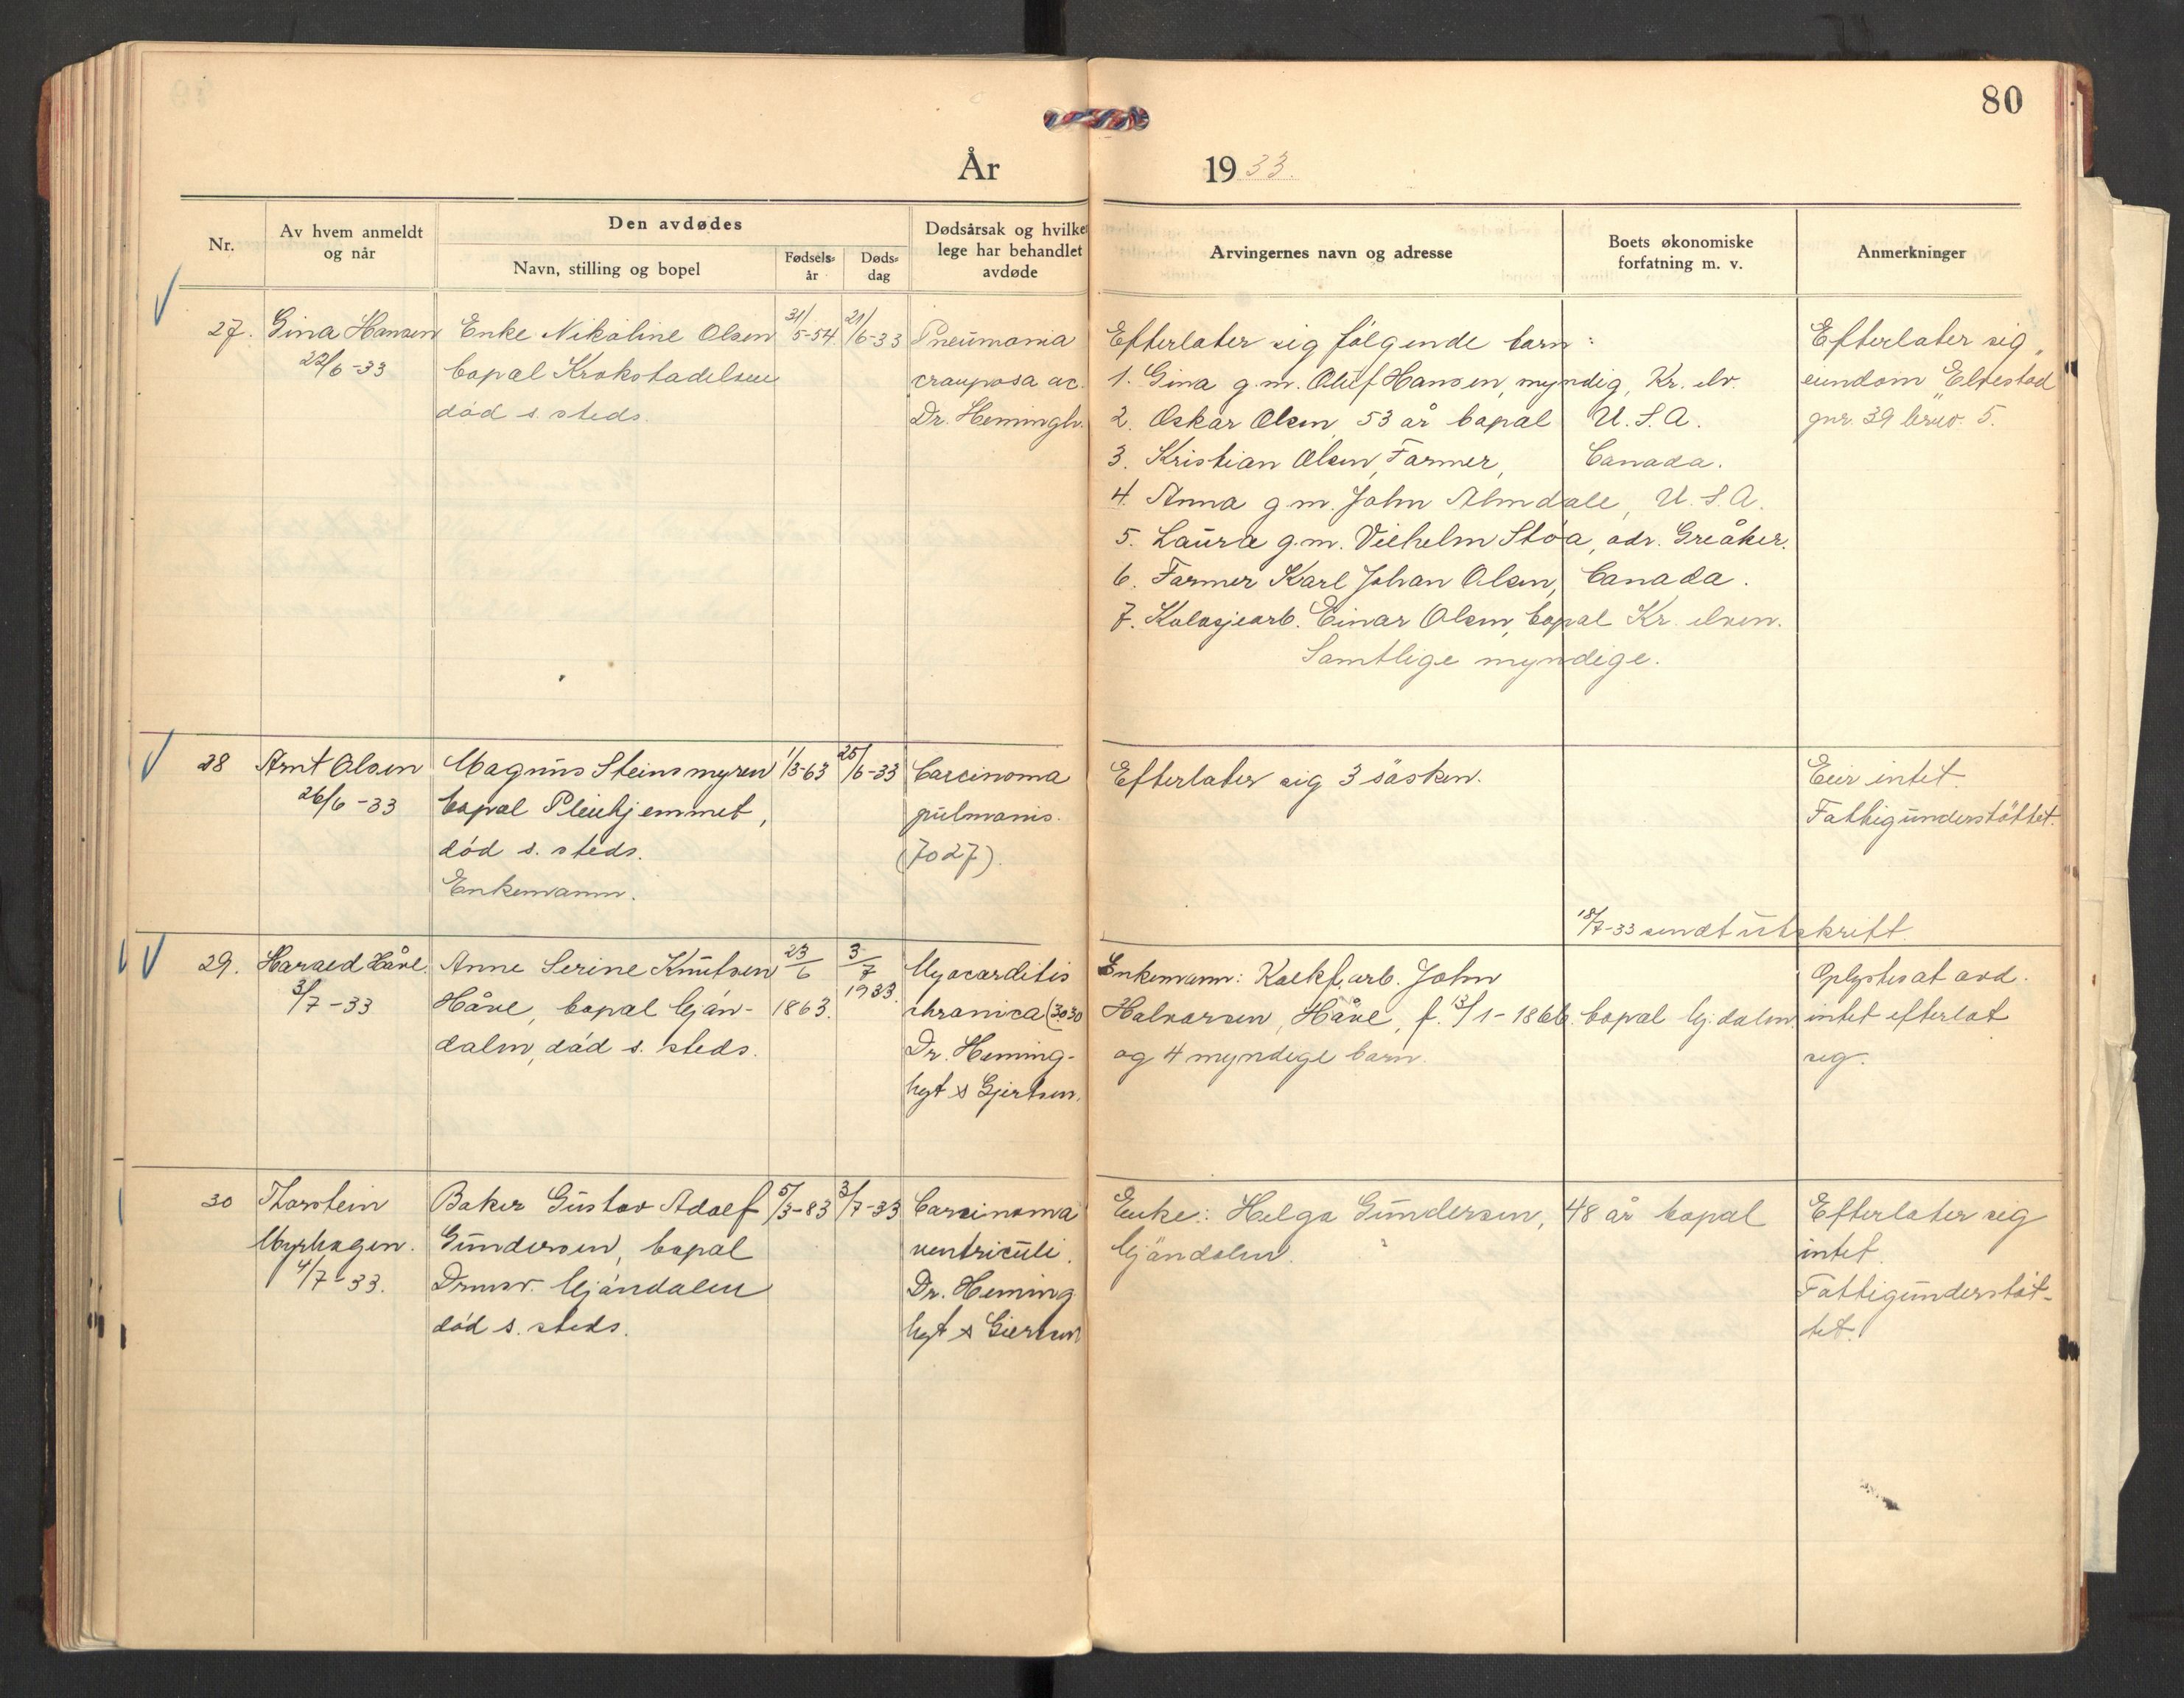 80
År 1933.
Nr.
Av hvem anmeldt og når
Den avdødes
Navn, stilling og bopel
Fødsels-år
Døds-dag
Dødsårsak og hvilken lege har behandlet avdøde
Arvingernes navn og adresse
Boets økonomiske forfatning m. v.
Anmerkninger
27. Gina Hansen
22/6-33
Enke Nikoline Olsen
bopæl Krokstadelven
död s. steds.
31/5-54
21/6-33
Pneumonia
crouposa ac.
Dr. Heminghy.
Efterlater sig følgende barn:
1. Gina g.m. Oluf Hansen, myndig, Kr. elv.
2. Oskar Olsen, 53 år bopæl U.S.A.
3. Kristian Olsen, Farmer, Canada.
4. Anna g.m. John Almdale, U.S.A.
5. Laura g.m. Vilhelm Stöa, adr. Greåker.
6. Farmer Karl Johan Olsen, Canada.
7. Kolosjearb. Einar Olsen, bopæl Kr. elven.
Samtlige myndige.
Efterlater sig
eiendom "Elvestad"
gnr. 39 brno. 5.
28 Arnt Olsen
26/6-33
Magnus Steinsmyren
bopæl Pleiehjemmet,
död s. steds.
Enkemann.
1/3-63
25/6-33
Carcinoma
pulmonis.
(7027).
Efterlater sig 3 søsken.
Eier intet.
Fattigunderstöttet.
18/7-33 sendt utskrift.
29. Harald Håve.
3/7-33
Anne Serine Knutsen
Håve, bopæl Mjön-
dalen, död s. steds.
23/6
1863.
3/7
1933.
Myocarditis
chronica (3030
Dr. Heming-
hyt & Gjertsen.
Enkemann: Kalkf.arb. John
Halvorsen, Håve, f. 13/1-1866. bopæl Mj.dalen
og 4 myndige barn.
Oplystes at avd.
intet efterlot
sig.
30 Thorstein
Myrhagen.
4/7-33.
Baker Gustav Adolf
Gundersen, bopæl
Drmsv. Mjöndalen
död s. steds.
5/3-83
3/7-33
Carcinoma
ventriculi.
Dr. Heming
hyt & Giertsen
Enke: Helga Gundersen, 48 år bopæl
Mjöndalen.
Efterlater sig
intet.
Fattigunderstöt-
tet.